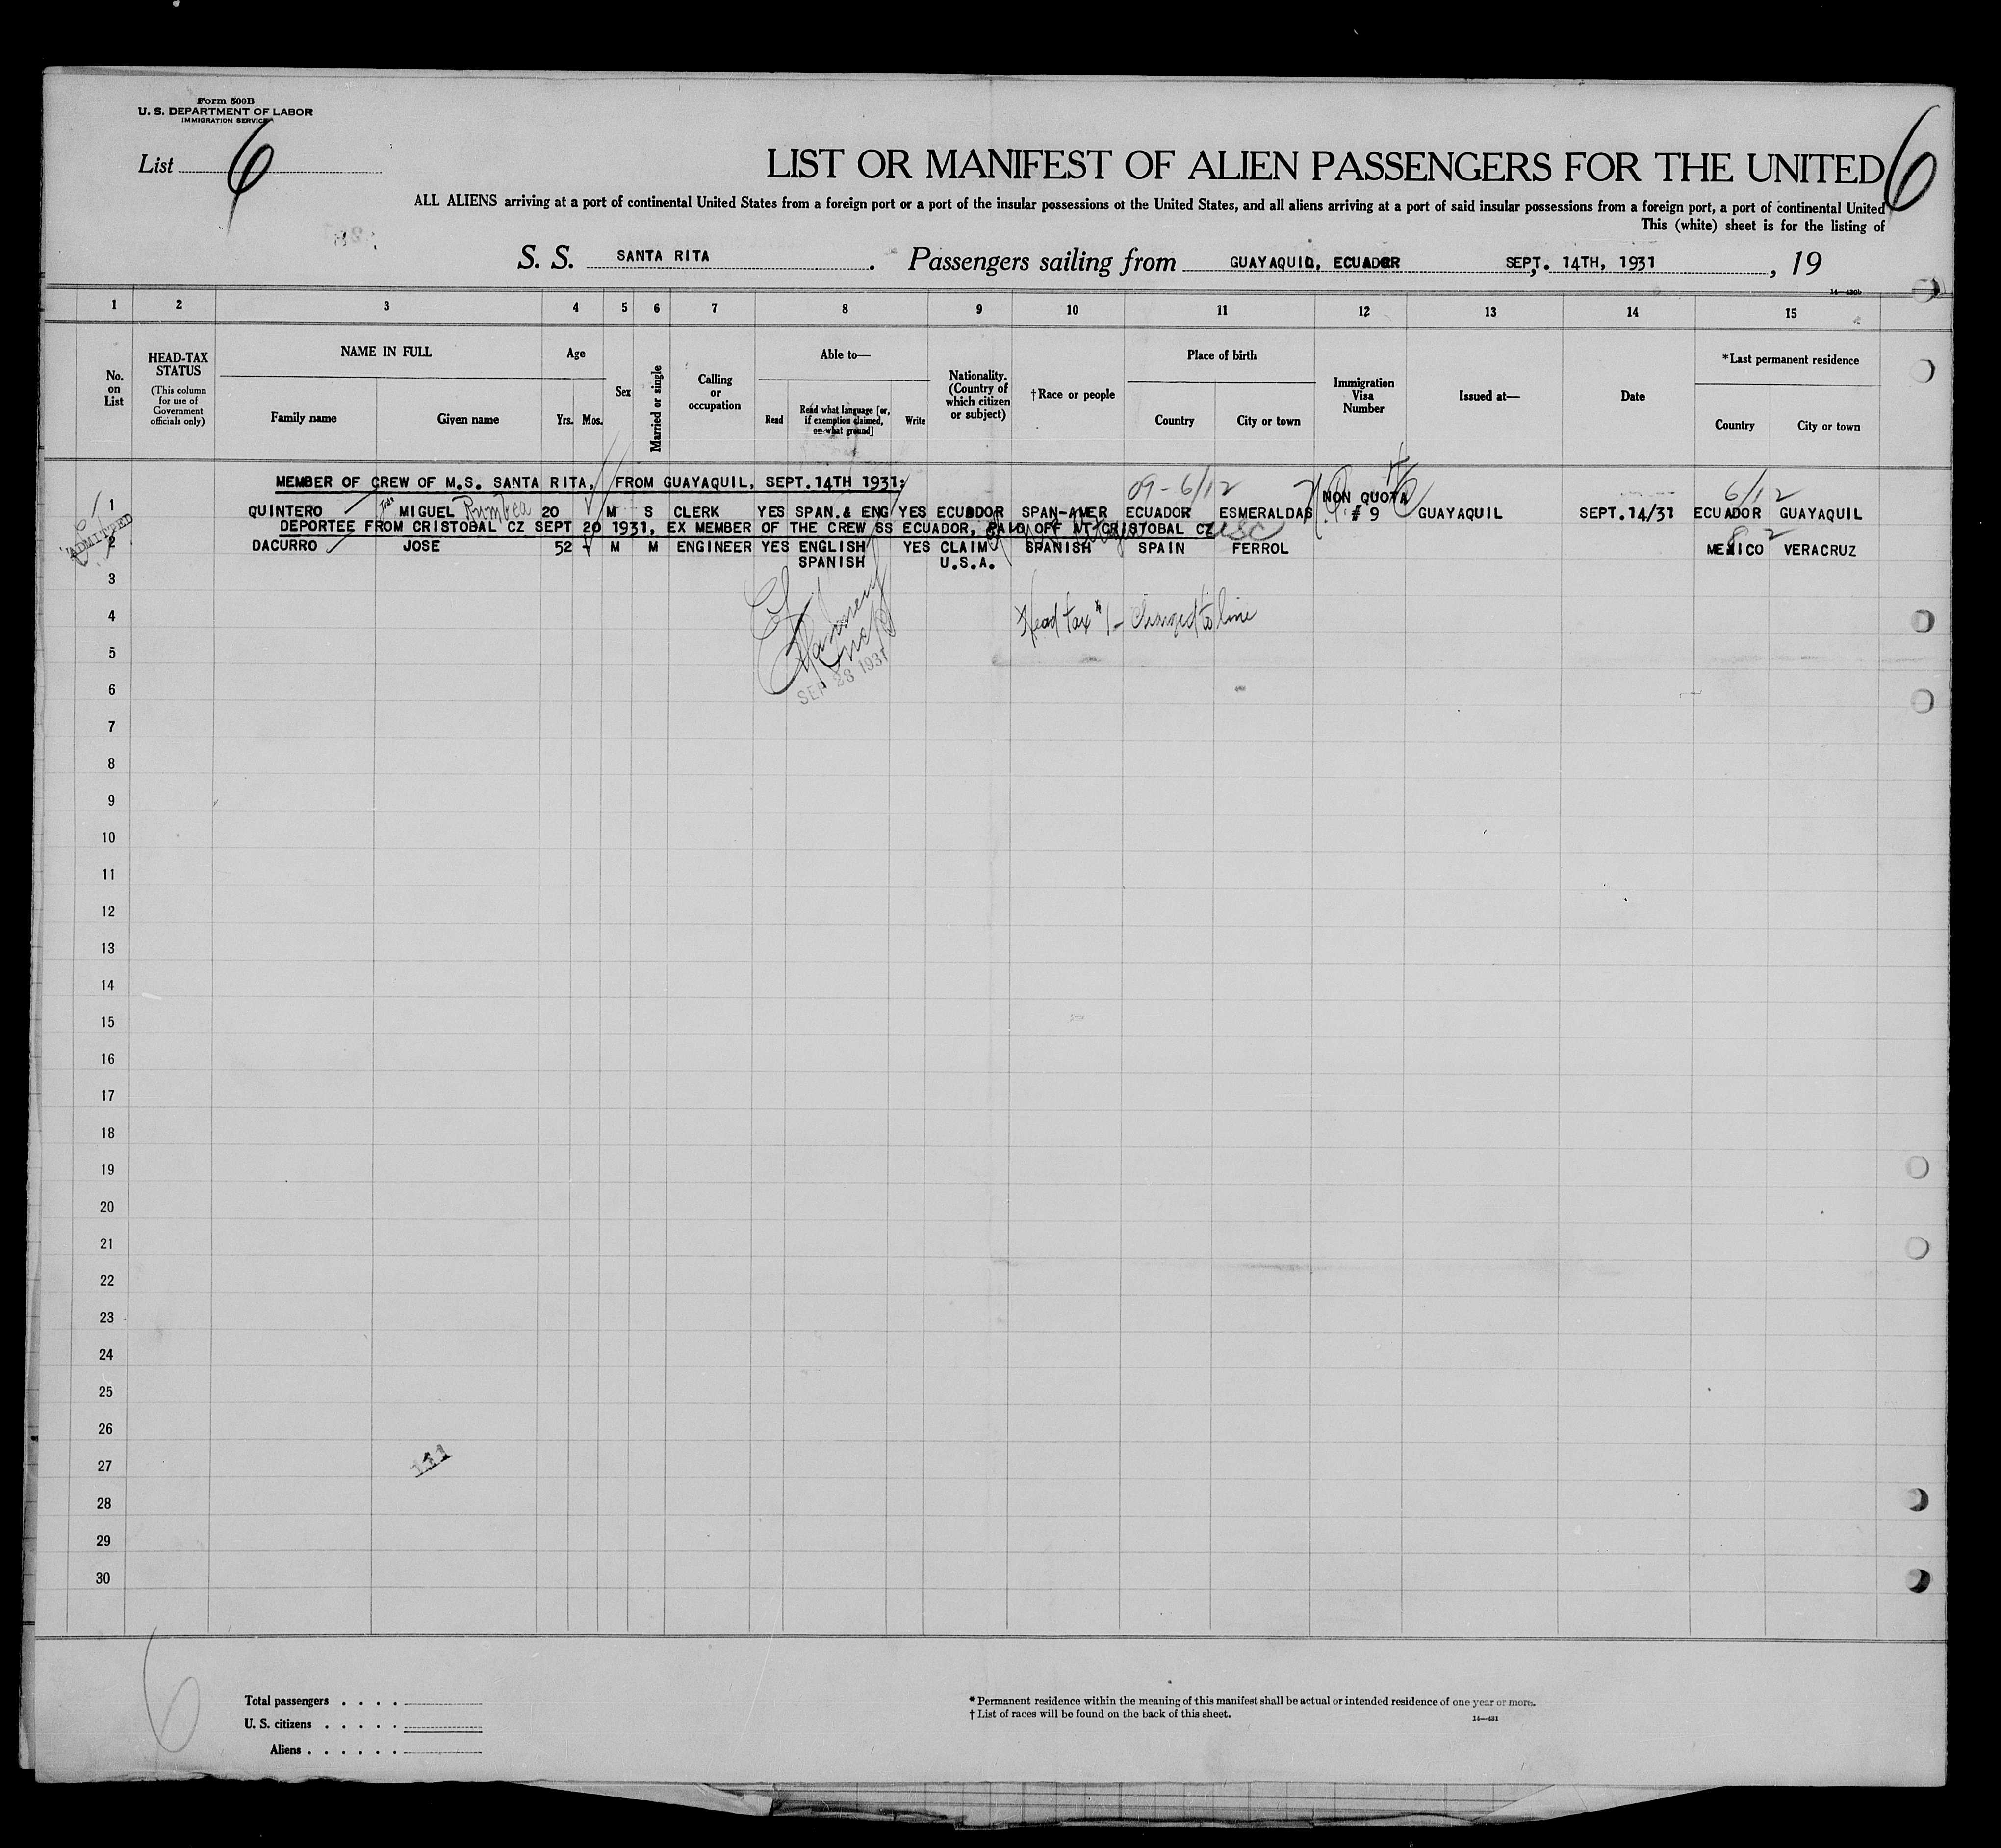 Form 500B
U. S. DEPARTMENT OF LABOR
IMMIGRATION SERVICE
List 6
6
LIST OR MANIFEST OF ALIEN PASSENGERS FOR THE UNITED
ALL ALIENS arriving at a port of continental United States from a foreign port or a port of the insular possessions of the United States, and all aliens arriving at a port of said insular possessions from a foreign port, a port of continental United
This (white) sheet is for the listing of
S. S. SANTA RITA. Passengers sailing from GUAYAQUIL, ECUADOR SEPT. 14TH, 1931, 19
14—430b
1 2 3 4 5 6 7 8 9 10 11 12 13 14 15
No. on List
HEAD-TAX STATUS
(This column for use of Government officials only)
NAME IN FULL
Family name Given name
Age
Yrs. Mos.
Sex
Married or single
Calling or occupation
Able to—
Read Read what language [or, if exemption claimed, on what ground] Write
Nationality. (Country of which citizen or subject)
†Race or people
Place of birth
Country City or town
Immigration Visa Number
Issued at—
Date
*Last permanent residence
Country City or town
MEMBER OF CREW OF M.S. SANTA RITA, FROM GUAYAQUIL, SEPT.14TH 1931:
09-6/12 NON QUOTA 6/12
1 QUINTERO José MIGUEL Rumbea 20 M S CLERK YES SPAN.& ENG YES ECUADOR SPAN-AMER ECUADOR ESMERALDAS # 9 GUAYAQUIL SEPT.14/31 ECUADOR GUAYAQUIL
ADMITTED
DEPORTEE FROM CRISTOBAL CZ SEPT 20 1931, EX MEMBER OF THE CREW SS ECUADOR, PAID OFF AT CRISTOBAL CZ USC
2 DACURRO JOSE 52 - M M ENGINEER YES ENGLISH YES CLAIM SPANISH SPAIN FERROL MEXICO VERACRUZ
SPANISH U.S.A.
3
4 Head tax #1 - Charged to line
5
SEP 28 1931
6
7
8
9
10
11
12
13
14
15
16
17
18
19
20
21
22
23
24
25
26
27 111
28
29
30
6
Total passengers
U. S. citizens
Aliens
* Permanent residence within the meaning of this manifest shall be actual or intended residence of one year or more.
† List of races will be found on the back of this sheet.
14—431